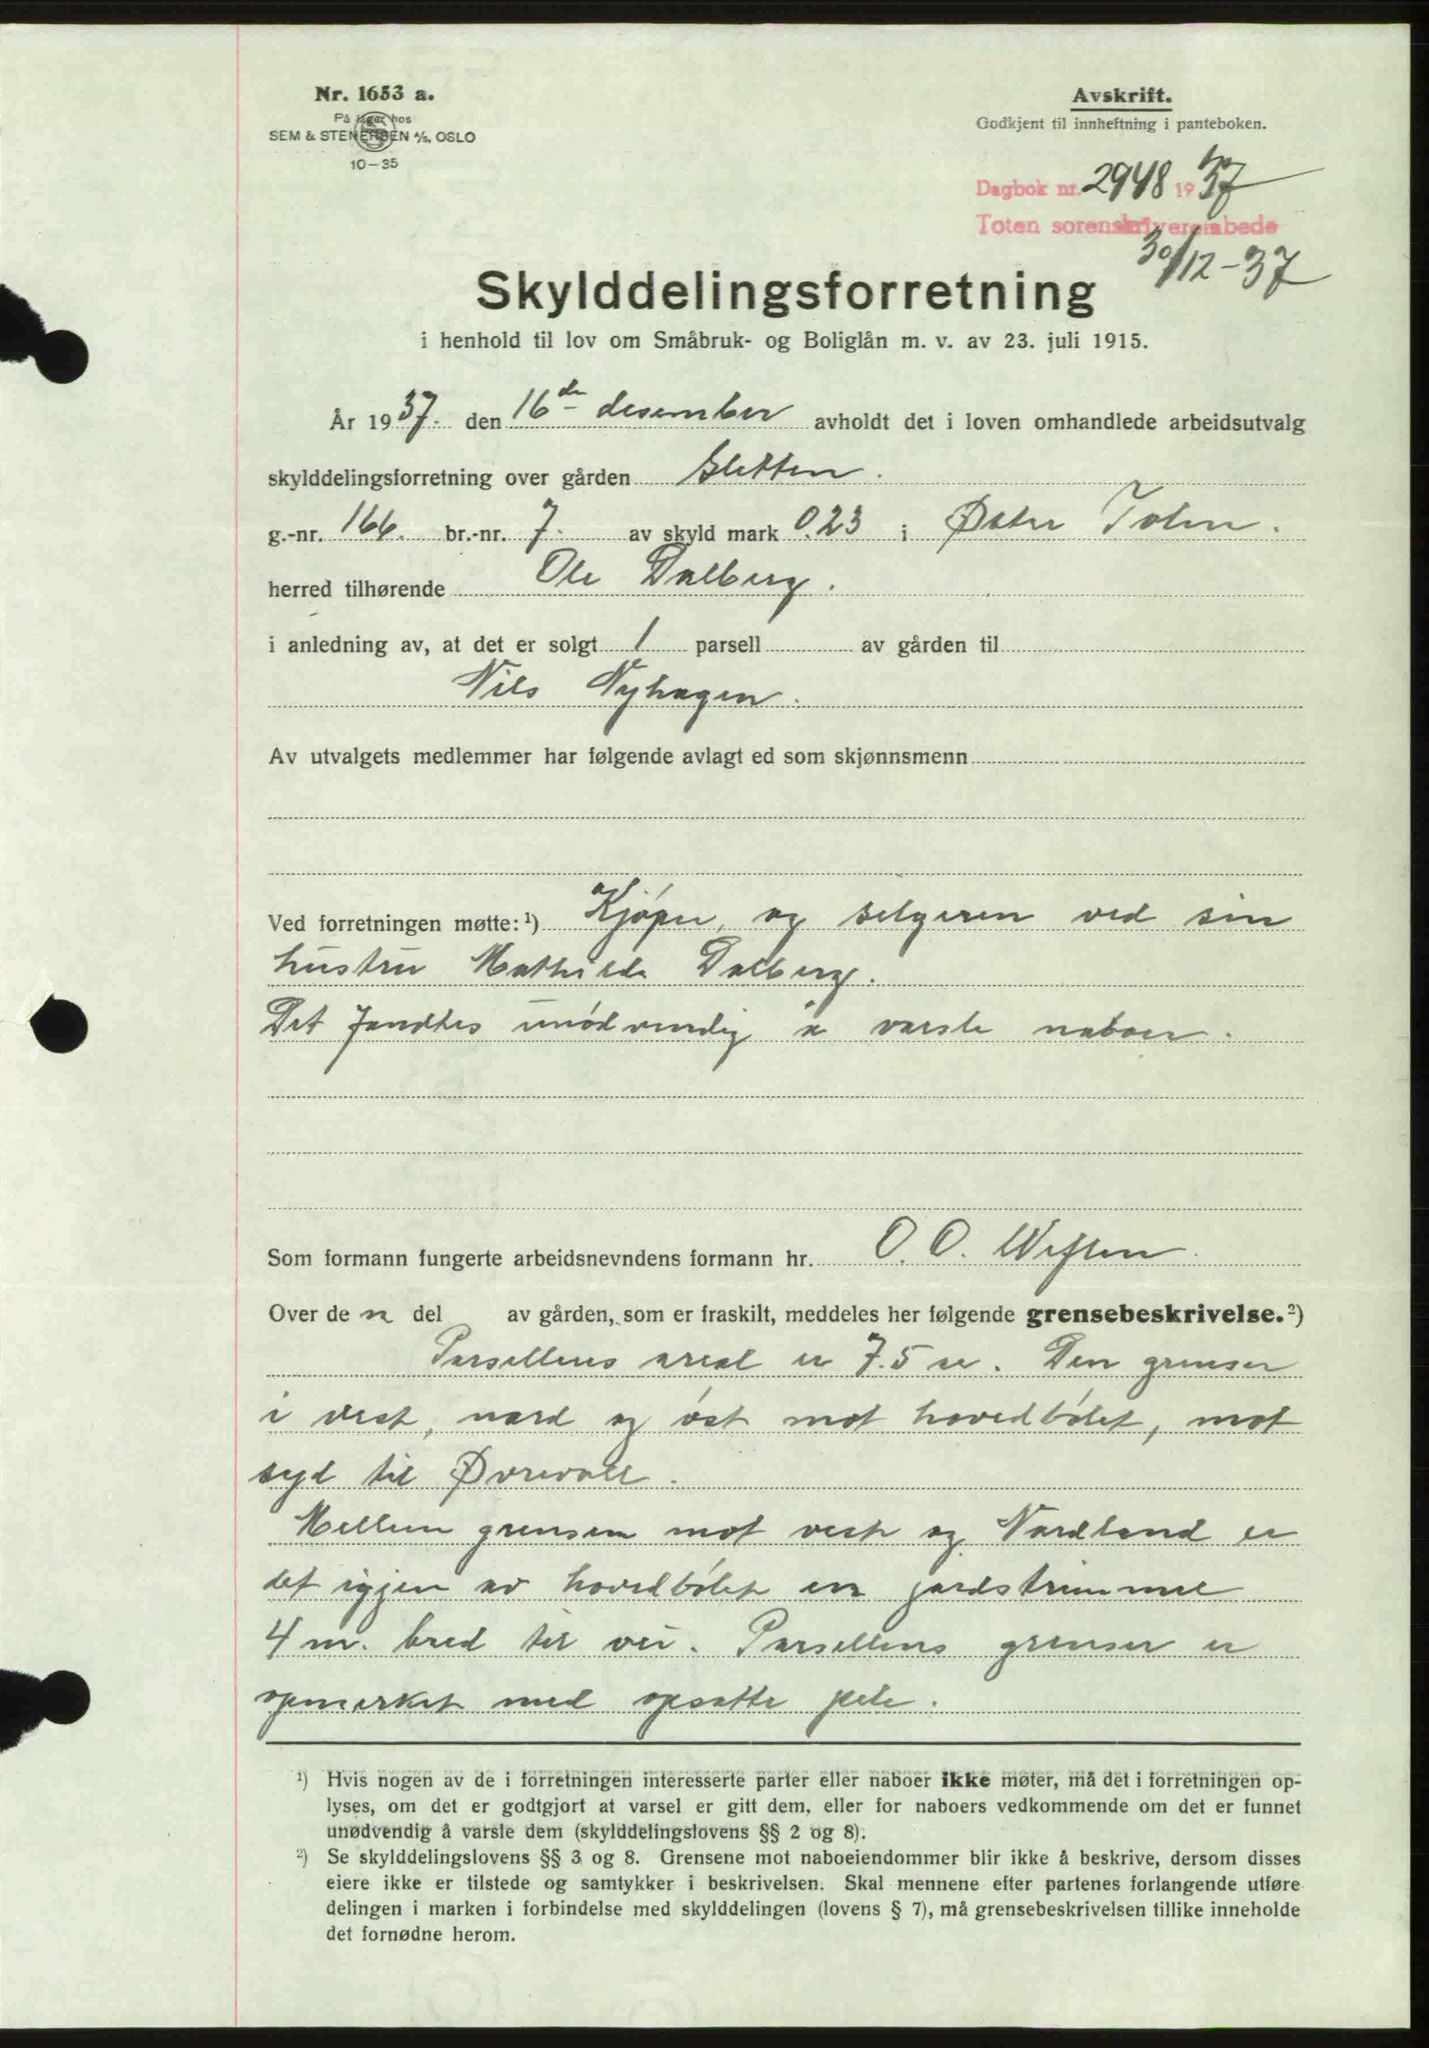 Nr. 1653 a.
På lager hos
SEM & STENERSEN A/S, OSLO
10-35
Avskrift.
Godkjent til innheftning i panteboken.
Dagbok nr. 2948 1937
Toten sorenskriverembede
30/12-37
Skylddelingsforretning
i henhold til lov om Småbruk- og Boliglån m. v. av 23. juli 1915.
År 1937. den 16de desember avholdt det i loven omhandlede arbeidsutvalg
skylddelingsforretning over gården Sletten.
g.-nr. 166. br.-nr. 7. av skyld mark 0.23 i Øster Toten.
herred tilhørende Ole Dalberg.
i anledning av, at det er solgt 1 parsell av gården til
Nils Nyhagen.
Av utvalgets medlemmer har følgende avlagt ed som skjønnsmenn
Ved forretningen møtte: 1) Kjøper, og selgeren ved sin
hustru Mathilde Dalberg.
Det fandtes unødvendig å varsle naboer.
Som formann fungerte arbeidsnevndens formann hr. O. O.
Over den del av gården, som er fraskilt, meddeles her følgende grensebeskrivelse. 2)
Parsellens areal er 7.5 ar. Den grenser
i vest, nord og øst mot hovedbølet, mot
syd til Øvrevoll.
Mellem grensen mot vest og Nordland er
det igjen av hovedbølet en jordstrimmel
4 m. bred til vei. Parsellens grenser er
opmerket med opsatte pele.
1) Hvis nogen av de i forretningen interesserte parter eller naboer ikke møter, må det i forretningen op-
lyses, om det er godtgjort at varsel er gitt dem, eller for naboers vedkommende om det er funnet
unødvendig å varsle dem (skylddelingslovens §§ 2 og 8).
2) Se skylddelingslovens §§ 3 og 8. Grensene mot naboeiendommer blir ikke å beskrive, dersom disses
eiere ikke er tilstede og samtykker i beskrivelsen. Skal mennene efter partenes forlangende utføre
delingen i marken i forbindelse med skylddelingen (lovens § 7), må grensebeskrivelsen tillike inneholde
det fornødne herom.